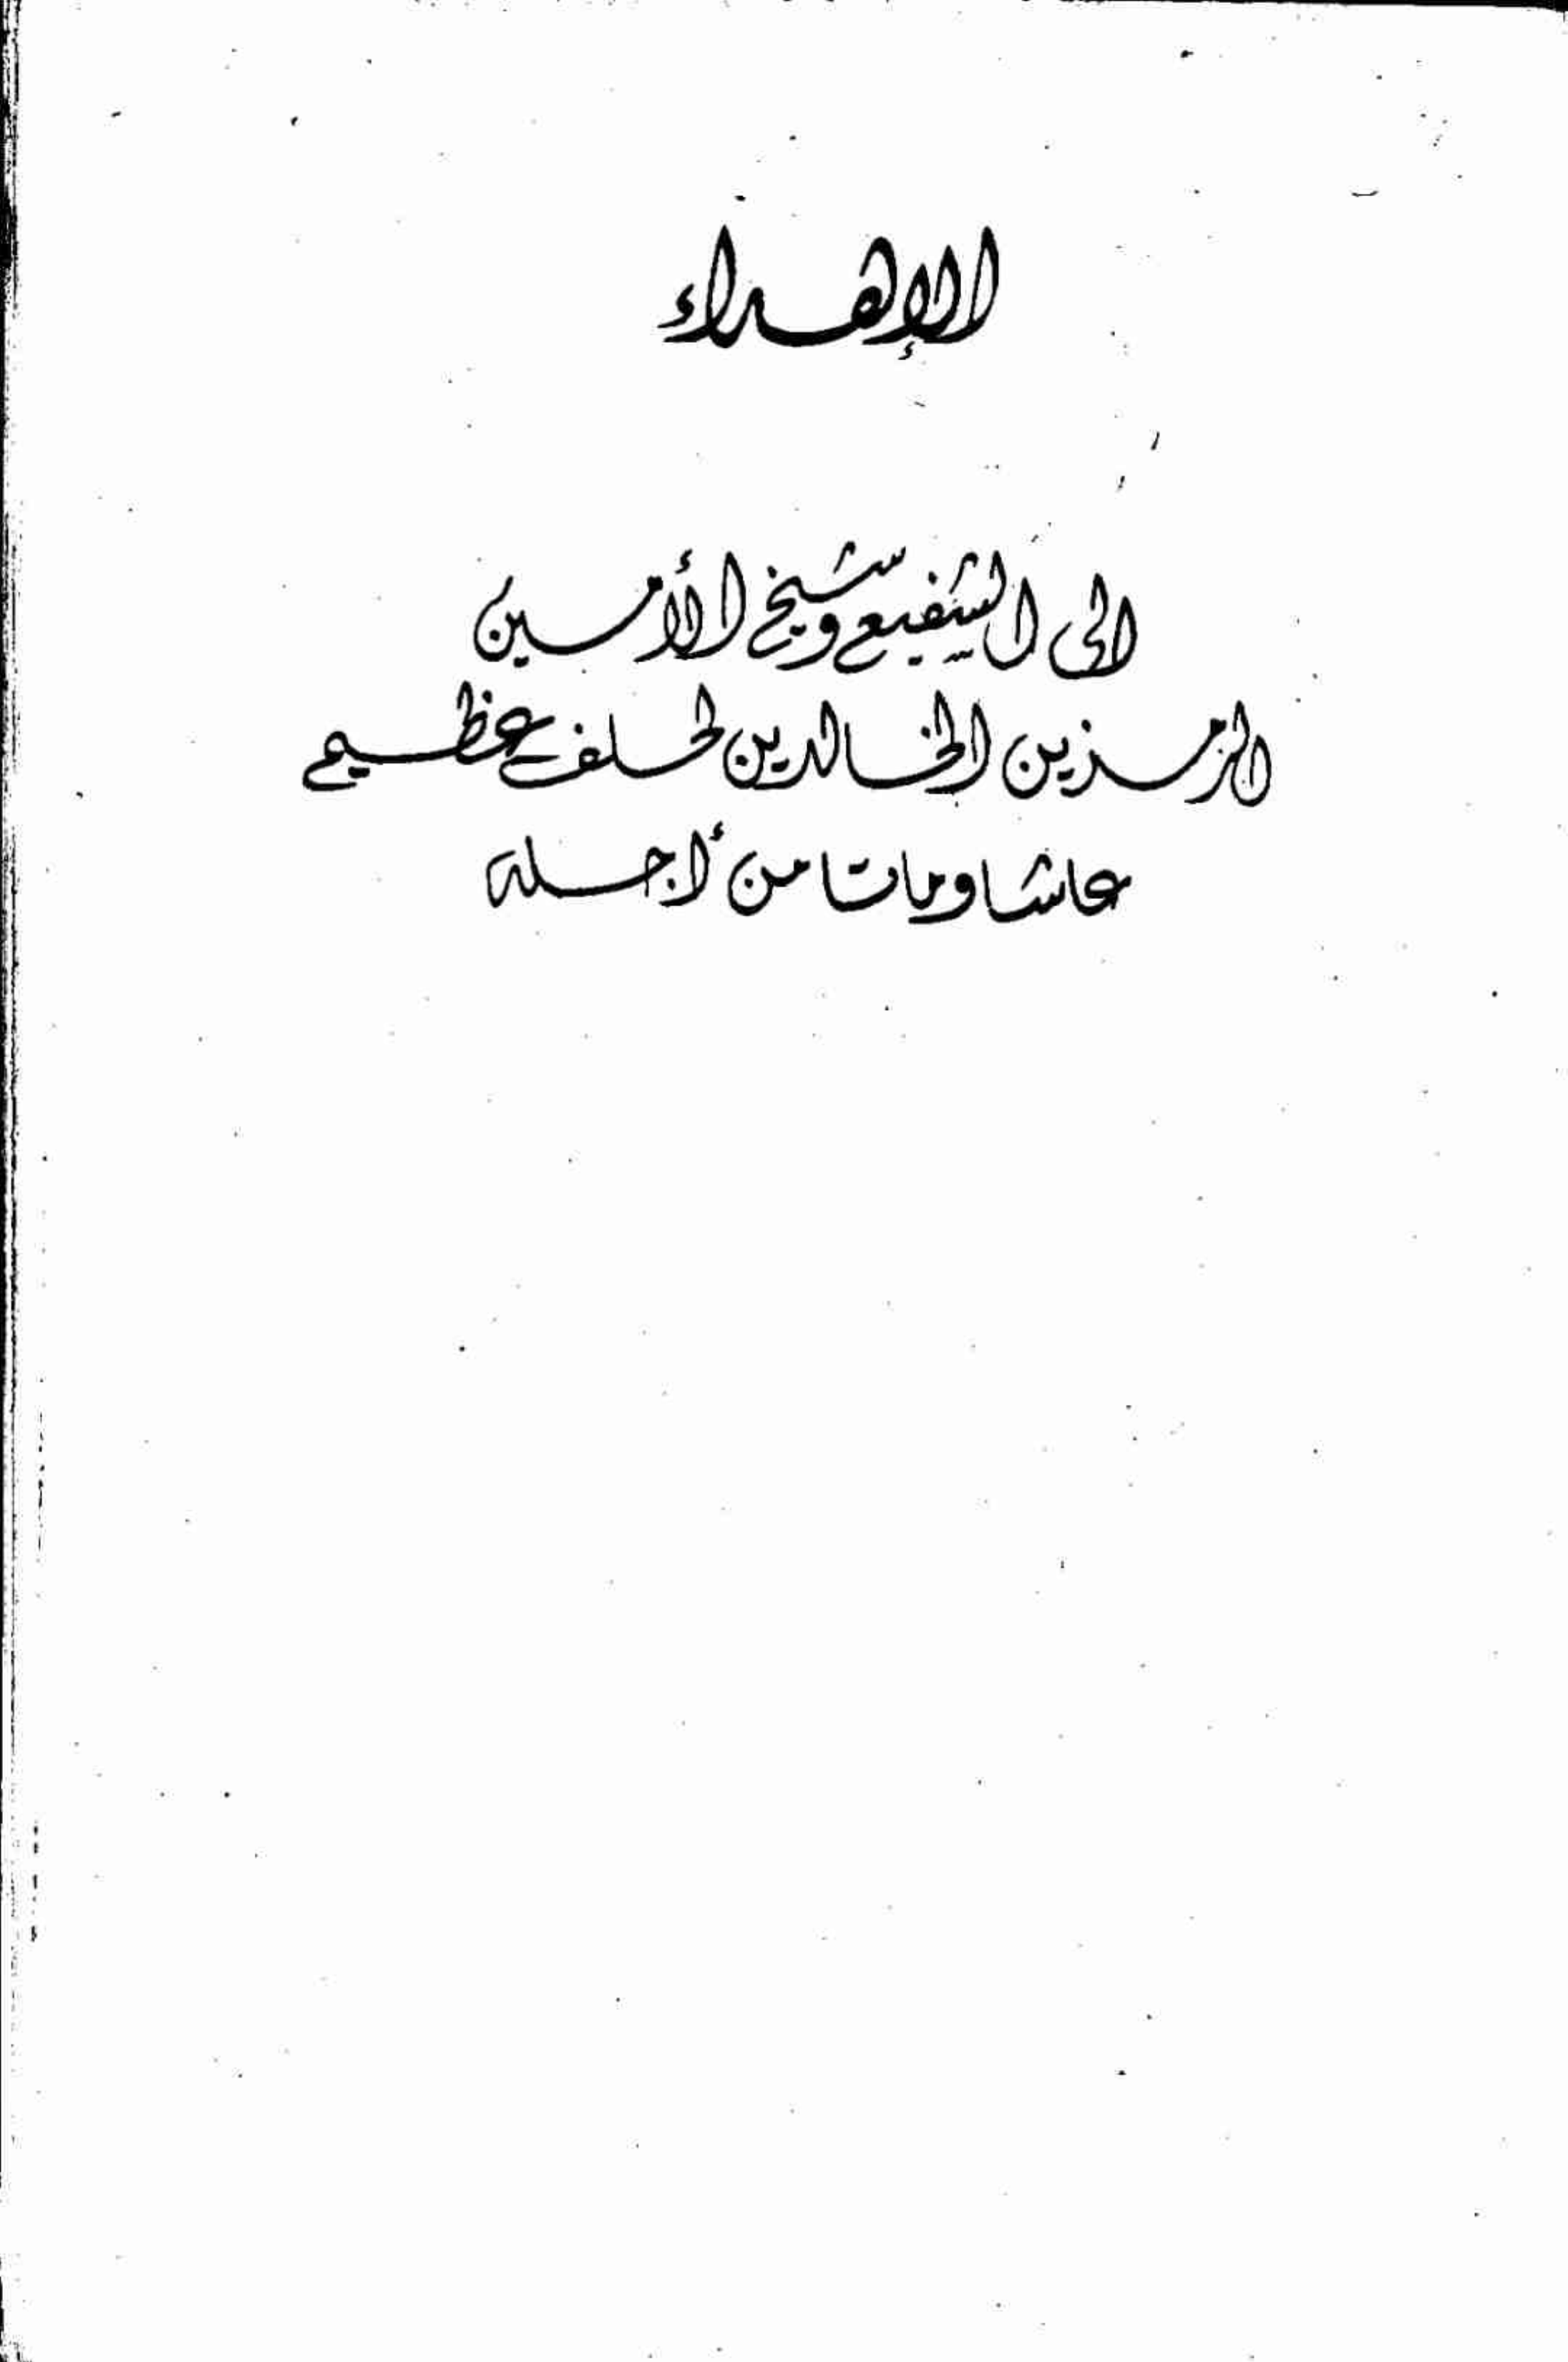 الإهداء
الى الشفيع وشيخ الأمين
الرمزين الخالدين لحلف عظيم
عاشا وماتا من أجله